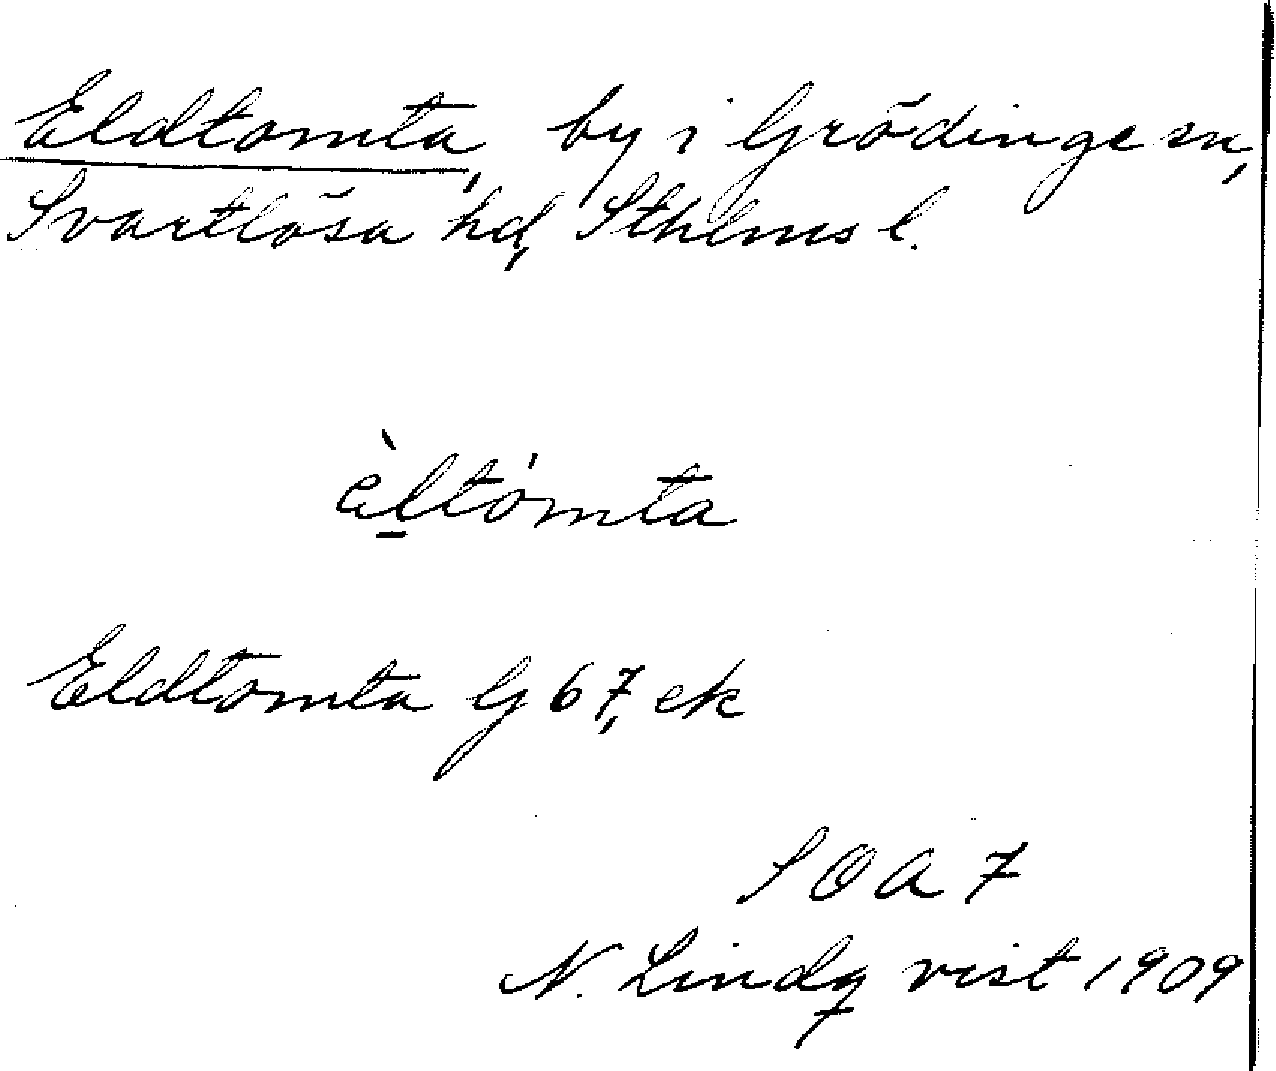 Eldtomta, by i Grödinge sn,
Svartlösa hd, Sthlms l.
èltómta
Eldtomta G 67, ek
SOA 7
N. Lindqvist 1909